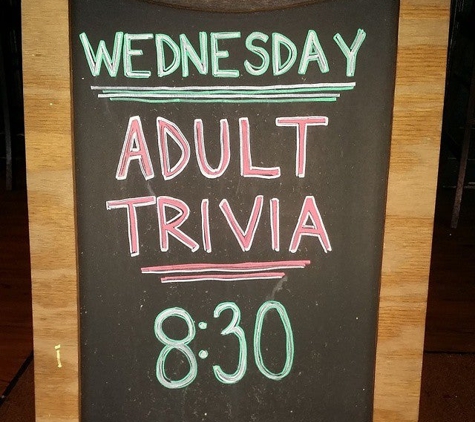 WEDNESDAY
ADULT
TRIVIA
8:30